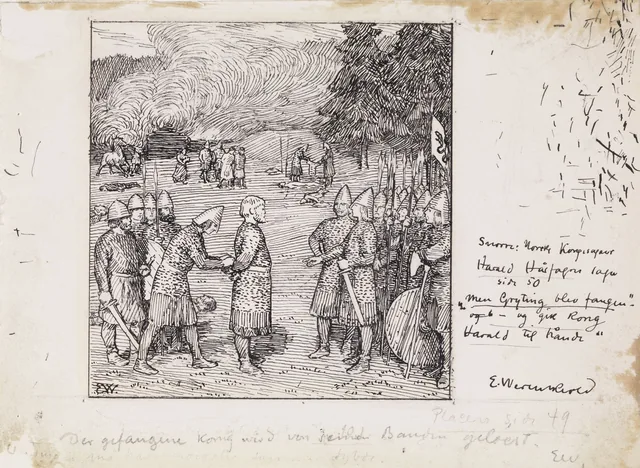 Snorre: Norske Kongesagaer
Harald Hårfagres saga
side 50
"Men Gryting blev fangen"
og gik Kong
Harald til hånde"
E. Werenskiold
EW.
Placeres side 49
Der gefangene König wird von den Banden gelöst.
EW.